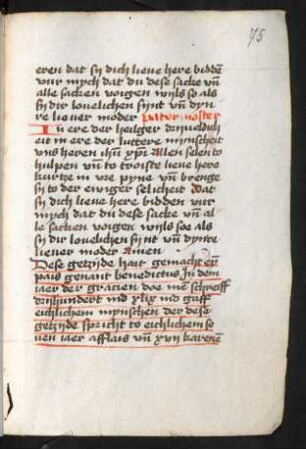 75
eren dat sy dich lieue here bidden
vur mych dat du dese sacke vn̄
alle sacken voigen wyls so als
sy dir louelichen synt vn̄ dyn
re lieuer moder Pater noster
In ere der heilger dryueldich
eit in ere der luttere mynscheit
vns heren ihū xpī Allen selen to
hulpen vn̄ to troiste lieue here
kurtze in ere pyne vn̄ brenge
sy to der ewiger selicheit Dat
sy dich lieue here bidden vur
mych dat du dese sacke vn̄ al
le sacken voigen wyls soe als
sy dir louelichen synt vn̄ dynre
lieuer moder Amen
Dese getzyde hait gemacht eyn
pais genant benedictus In dem
iaer der gracien doe men schreiff
dryhundert ind xlix ind gaff
eichlichem mynschen der dese
getzyde spricht to eichlichem so
uen iaer afflais vn̄ xvii karenen